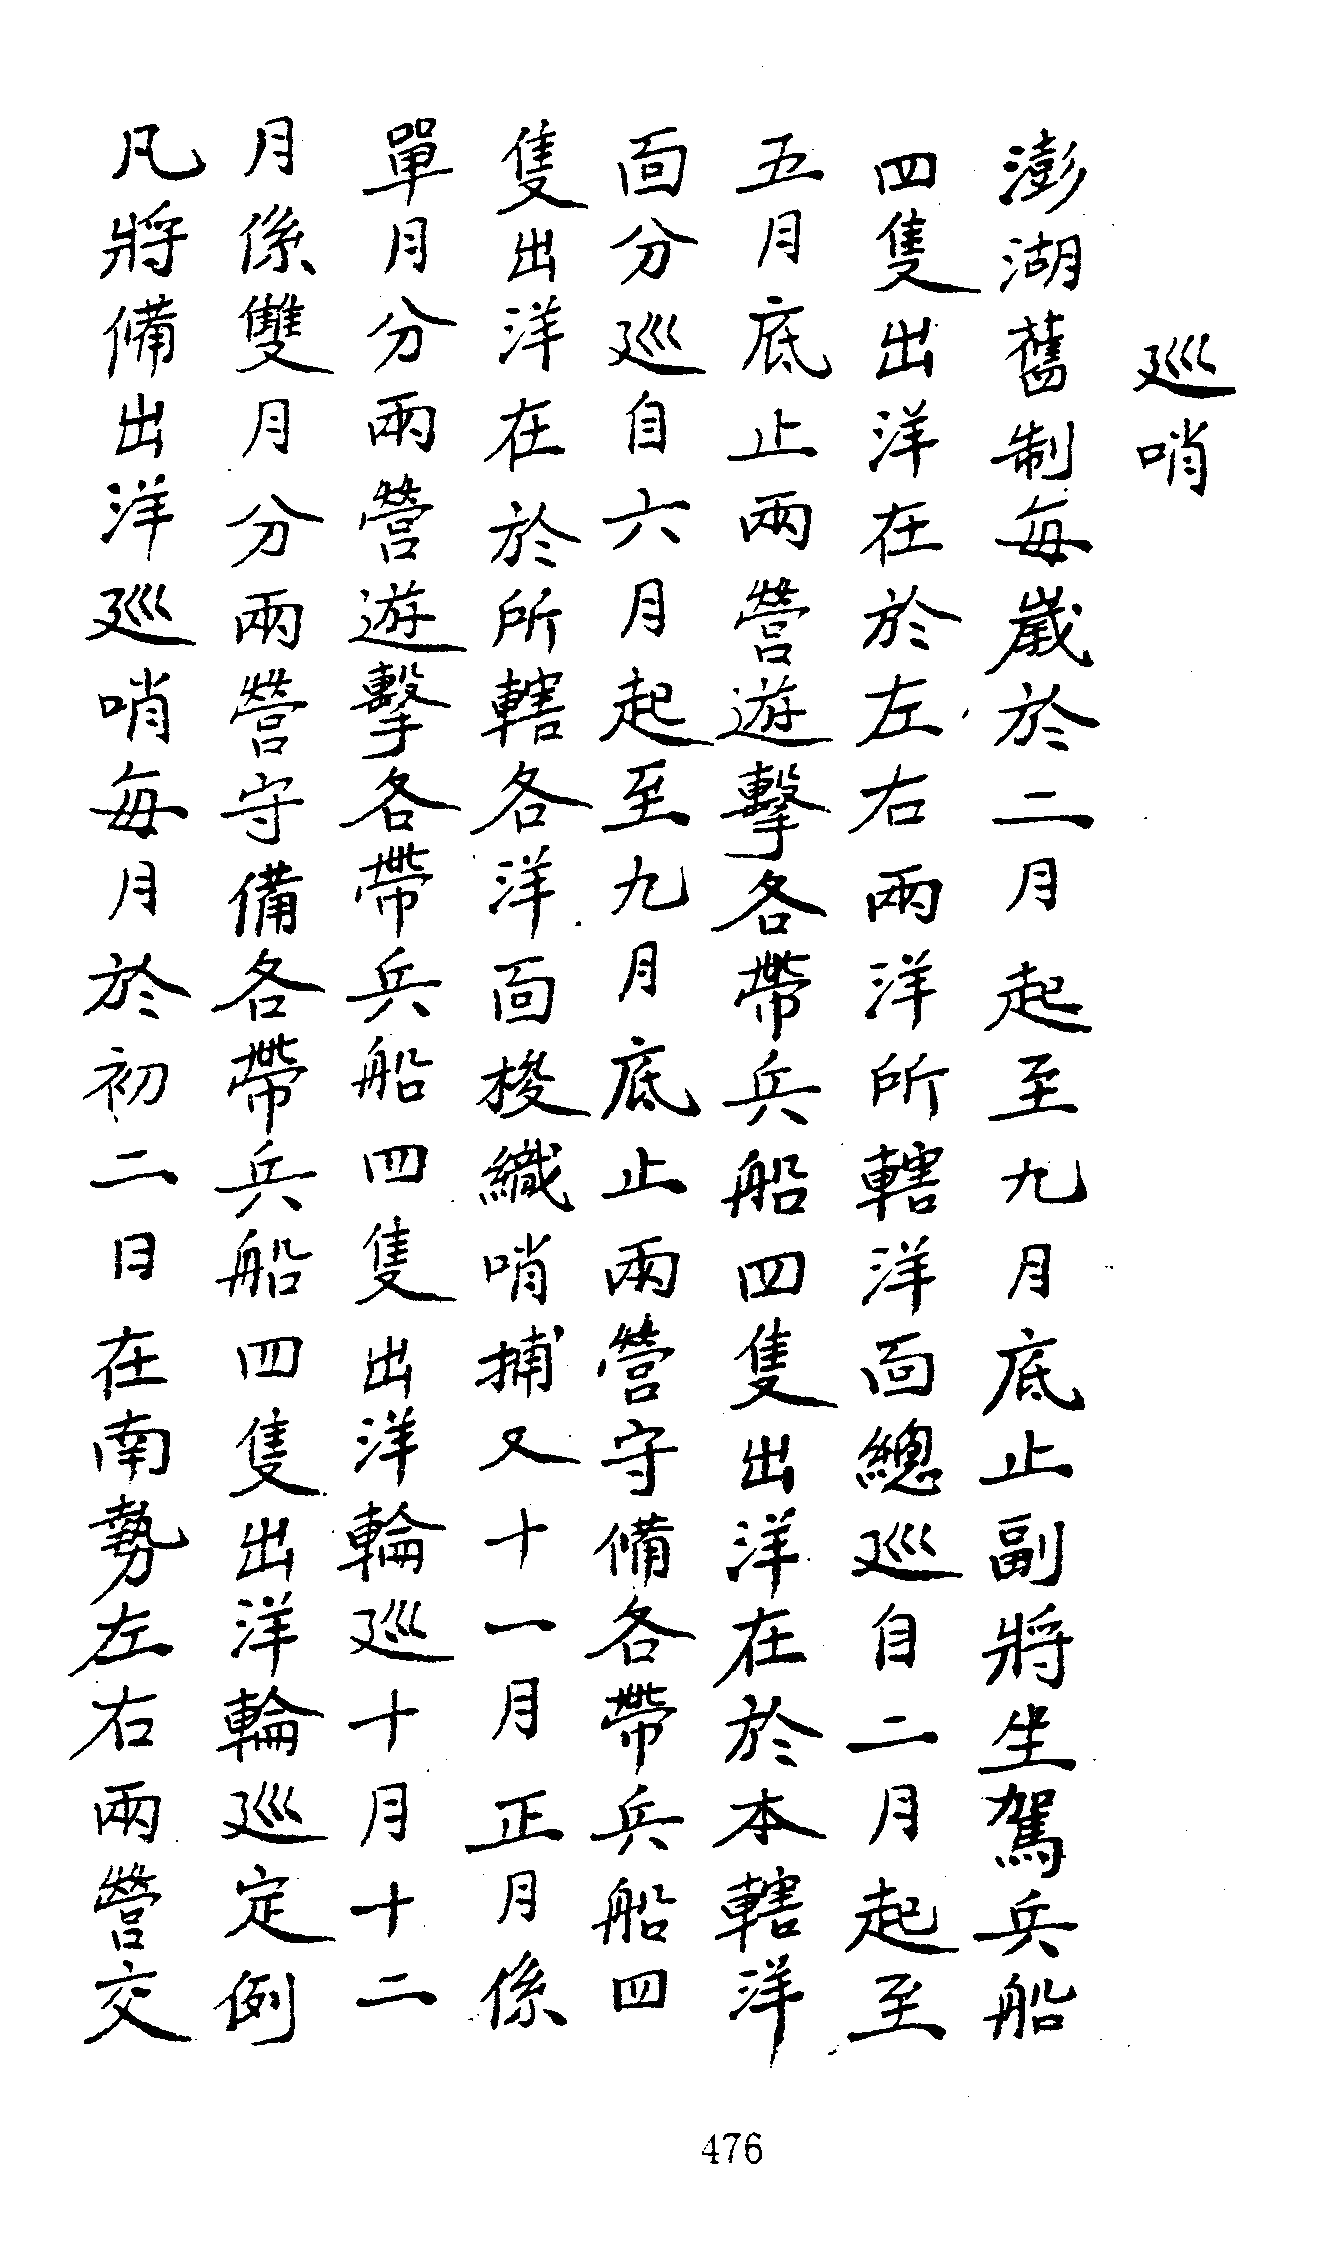 巡哨
澎湖舊制每嵗於二月起至九月底止副將坐駕兵船
四隻出洋在於左右兩洋所轄洋面總巡自二月起至
五月底止兩營遊擊各帶兵船四隻出洋在於本轄洋
面分巡自六月起至九月底止兩營守備各帶兵船四
隻出洋在於所轄各洋面梭織哨捕又十一月正月係
單月分兩營遊擊各帶兵船四隻出洋輪巡十月十二
月係雙月分兩營守備各帶兵船四隻出洋輪巡定例
凡將備出洋巡哨每月於初二日在南勢左右兩營交
476